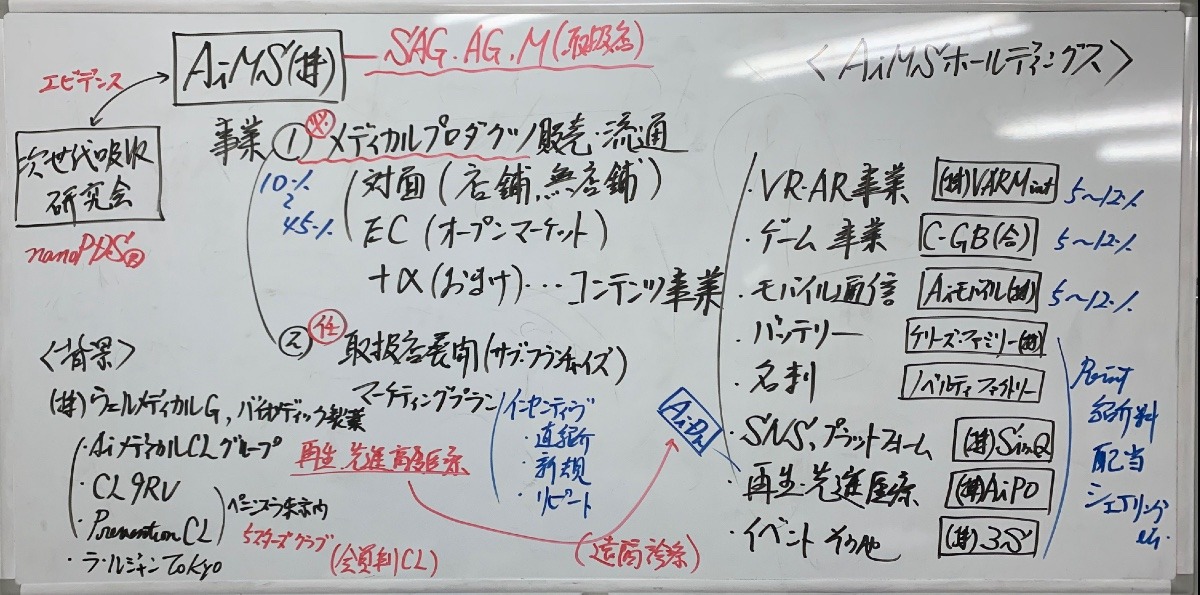 エビデンス
AiMS(株)
SAG.AG.M(取扱店)
次世代吸収
研究会
nanoPDS®
事業 ① 必 メディカルプロダクツ販売・流通
10%
45%
対面(店舗、無店舗)
EC(オープンマーケット)
+α(おまけ)・・・コンテンツ事業
② 任 取扱店展開(サブ・フランチャイズ)
マーケティングプラン
インセンティブ
・直紹介
・新規
・リピート
〈背景〉
(株)ウェルメディカルG、バイオメディック製薬
・AiメディカルCLグループ
・CL9RV
・Prevention CL
ペニンスラ東京内
・ラ・ルジャン Tokyo
再生・先進高度医療
5スターズクラブ
(会員制CL)
(遠隔診療)
〈AiMSホールディングス〉
・VR・AR事業 (株)VARMint 5〜12%
・ゲーム事業 C-GB(合) 5〜12%
・モバイル通信 Aiモバイル(株) 5〜12%
・バッテリー ケリーズ・ファミリー(株)
・名刺 ノベルティファクトリー
・SNS、プラットフォーム (株)SinQ
・再生・先進医療 (株)AiPO
・イベントその他 (株)3S
Point
紹介料
配当
シェアリング
etc.